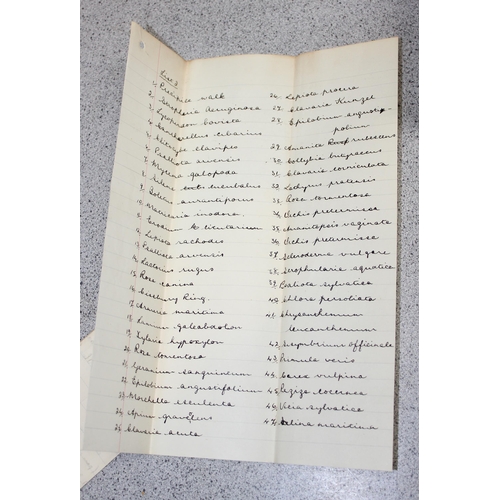 List 3
1. Cliffside walk
2. Stropharia Aeruginosa
3. Lycoperdon bovista
4. Cantharellus cibarius
5. Clitocybe clavipes
6. Psalliota arvensis
7. Mycena galopoda
8.
9. auranteporus
10. inodora.
11. cicutarium
12. Lepiota rachodes
13. Psalliota arvensis
14. Lactarius rufus
15. Rosa canina
16. Cissbury Ring.
17. Armeria maritima
18. Lamium galeobdolon
19. Xylaria hypoxylon
20. Rosa tomentosa
21. Geranium sanguineum
22. Epilobium angustifolium
23. Morchella esculenta
24. Apium graveolens
25. Clavaria acuta
26. Lepiota procera
27. Clavaria Kunzei
28. Epilobium angustifolium
29. Amanita rubescens
30. Collybia butyracea
31. Clavaria corniculata
32. Lathyrus pratensis
33. Rosa tomentosa
34. Orchis praetermissa
35. Amanitopsis vaginata
36. Orchis praetermissa
37. Scleroderma vulgare
38. Scrophularia aquatica
39. Psalliota sylvatica
40. Chlora perfoliata
41. Chrysanthemum
Leucanthemum
42. Sisymbrium officinale
43. Primula veris
44. Carex vulpina
45. Peziza
46. Vicia sylvatica
47. maritima